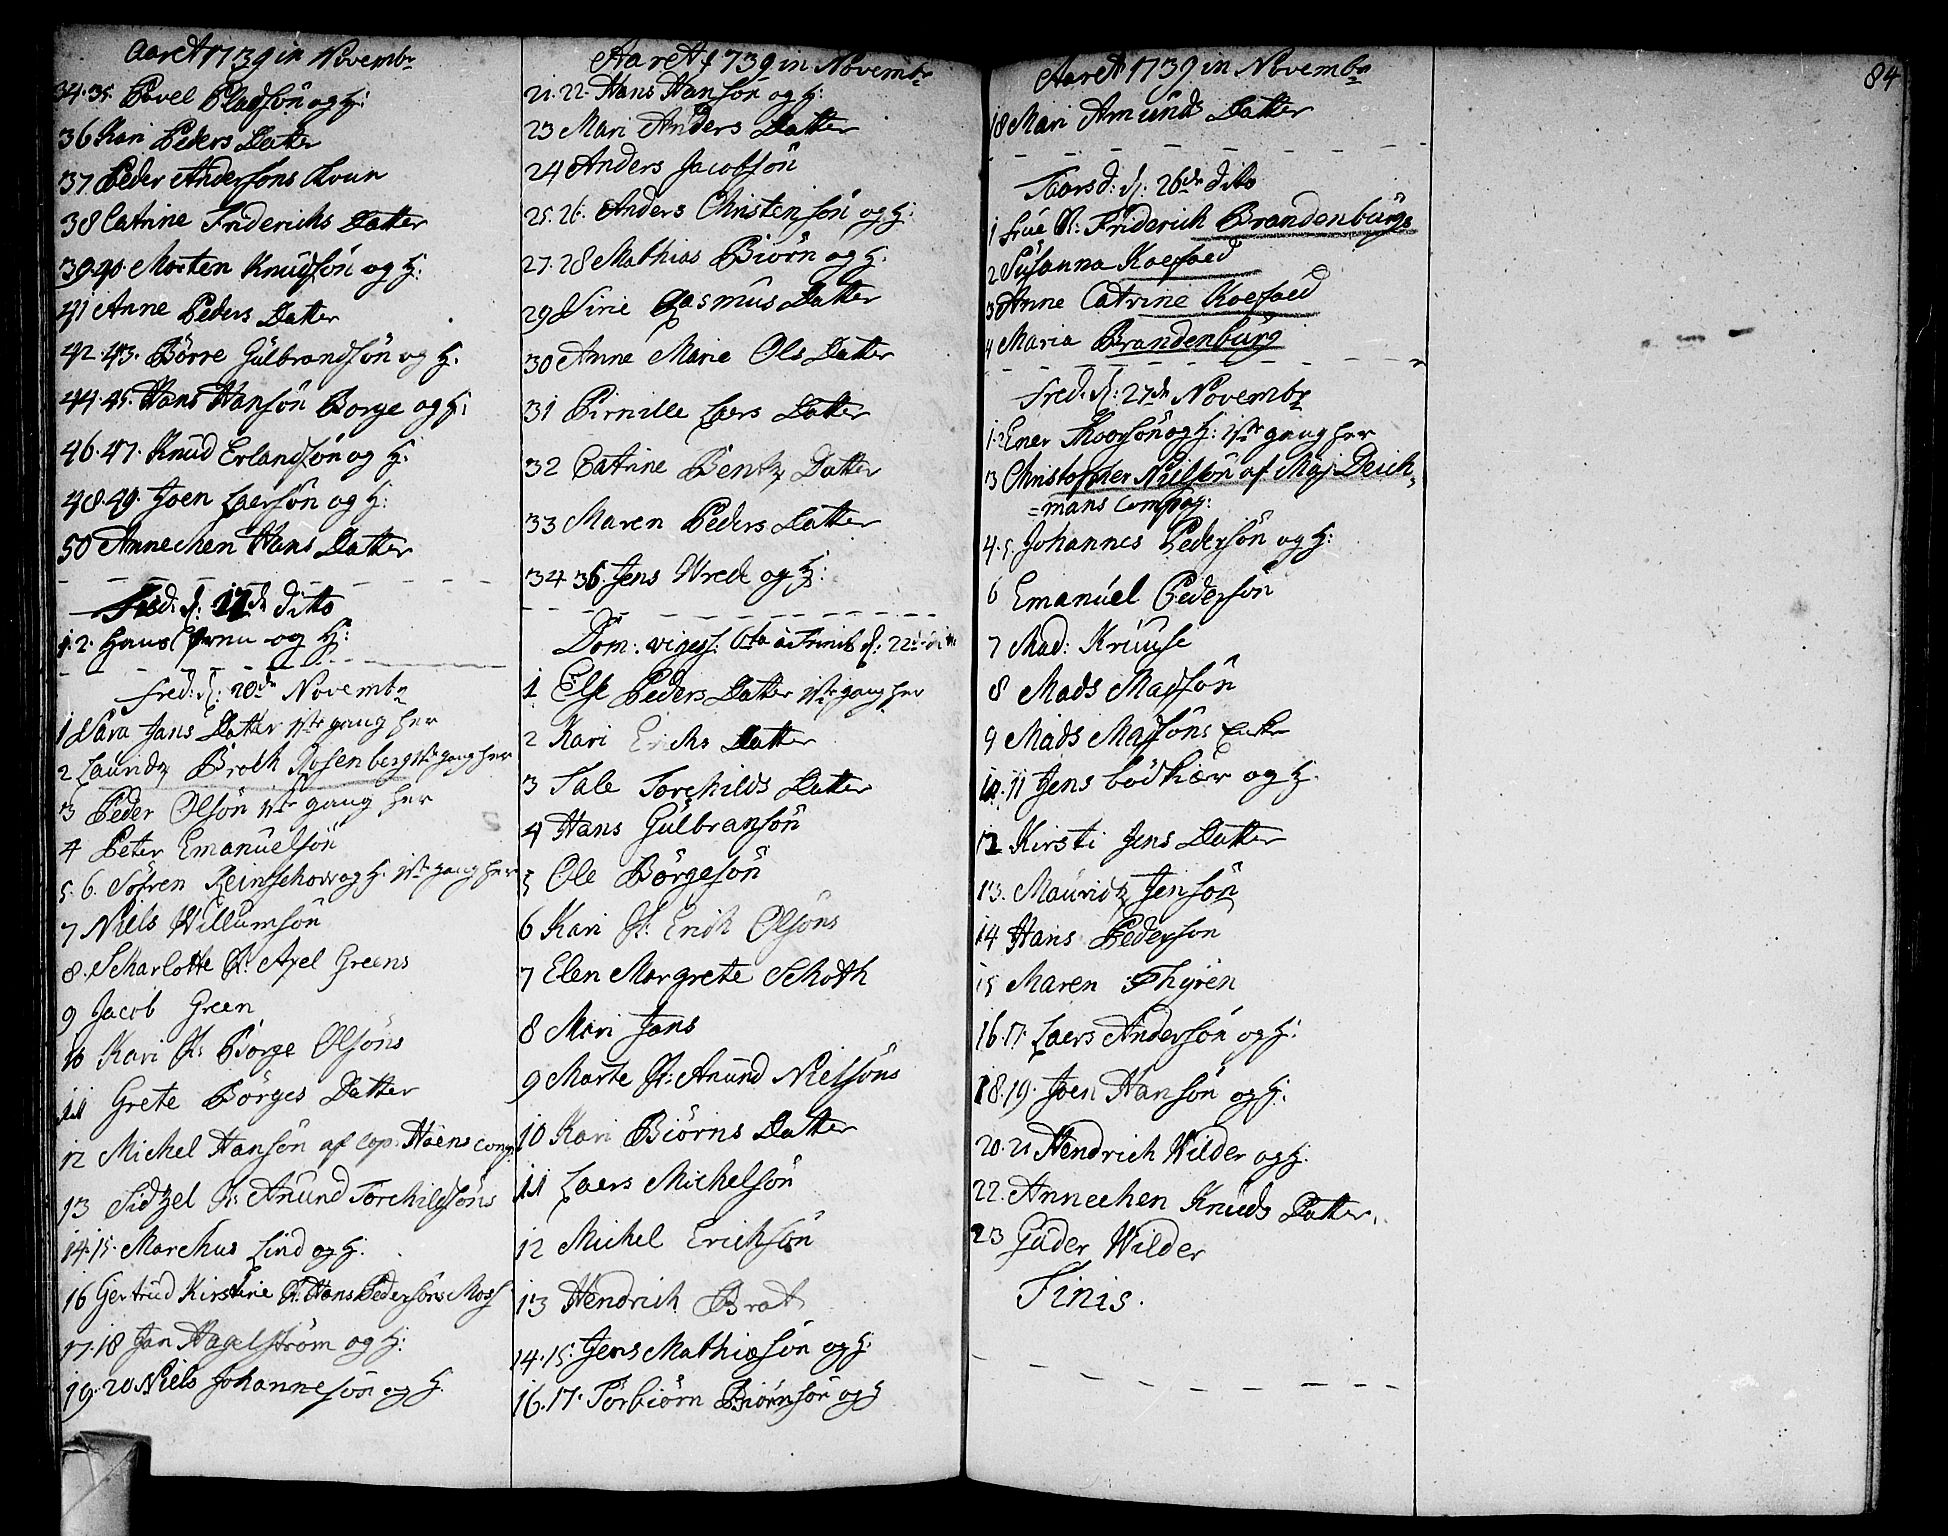 Aaret 1739 in Novembr
34. 35. Povel Pladsøn og H:
36 Kari Peders Datter
37 Peder Andersøns Kone
38 Catrine Friderichs Datter
39. 40. Morten Knudsøn og H:
41 Anne Peders Datter
42. 43. Börre Gülbrandsön og H.
44. 45. Hans Hansön Borge og H:
46. 47. Knud Erlandsön og H:
48. 49. Joen Laersön og H:
50 Annechen Hans Datter
Fred: d: dito
1. 2. Hans og H:
Fred: d: 20de Novembr
1 Sara Jans Datter 1ste gang her
2 Lauridtz Broch Rosenberg 1ste gang her
3 Peder Olsön 1ste gang her
4 Peter Emanuelsön
5. 6. Söfren Reinschow og H. 1ste gang her
7 Niels Willumsön
8. Scharlotte K: Axel Greens
9 Jacob Green
10 Kari K: Börge Olsöns
11 Grete Börges Datter
12 Michel Hansön af Cap: Höens Comp
13 Sidtzel K: Amund Torchildsöns
14. 15. Marchus Lind og H.
16 Gertrud Kirstine K: Hans Pedersöns Moss
17. 18 Jan Hagelström og H:
19. 20 Niels Johannesön og H.
Aaret 1739 in Novembr
21. 22. Hans Hansön og H:
23 Mari Anders Datter
24 Anders Jacobsön
25. 26. Anders Christensön og H:
27. 28 Mathias Biörn og H.
29 Sirie Rasmus Datter
30 Anne Marie Ols Datter
31 Pirnille Laers Datter
32 Catrine Bentz Datter
33 Maren Peders Datter
34 35. Jens Wrede og H:
Dom: vigess: 6ta à Trinit d: 22de
1 Else Peders Datter 1ste gang her
2 Kari Erichs Datter
3 Tale Torchilds Datter
4 Hans Gülbransön
5 Ole Börgesön
6 Kari K: Erich Olsöns
7 Elen Margrete Schoth
8 Mari Jans
9 Marte K: Amund Nielsöns
10 Kari Biörns Datter
11 Laers Michelsön
12 Michel Erichsön
13 Hendrich Brat
14. 15. Jens Mathiesön og H:
16. 17. Torbiörn Biörnsön og H
Aaret 1739 in Novembr
84
18 Mari Amunds Datter
Torsd: d: 26de dito
1 Frue K: Friderich Brandenburgs
2 Susanna Koefoed
3 Anne Catrine Koefoed
4 Maria Brandenburg
Fred. d: 27de Novembr
1. 2 Ener Thorsön og H: 1ste gang her
3 Christopher Nielsön af Maj Deich-
=mans Compag:
4. 5 Johannes Pedersön og H:
6 Emanuel Pedersön
7 Mad: Kruuse
8 Mads Madsön
9 Mads Madsöns Encke
10. 11 Jens bödkiær og H.
12 Kirsti Jens Datter
13. Mauridtz Jensön
14 Hans Pedersön
15 Maren Thyren
16. 17. Laers Andersön og H:
18. 19. Joen Hansön og H:
20. 21 Hendrich Wilder og H.
22. Annechen Knuds Datter.
23 Guder Wilder
Finis.